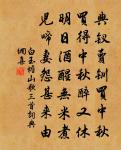 典釵賣釧買中秋
買得中秋醉又休
明日酒醒無米煮
兒啼妻怨甚來由
白玉蟾山歌三首詞典
網喜